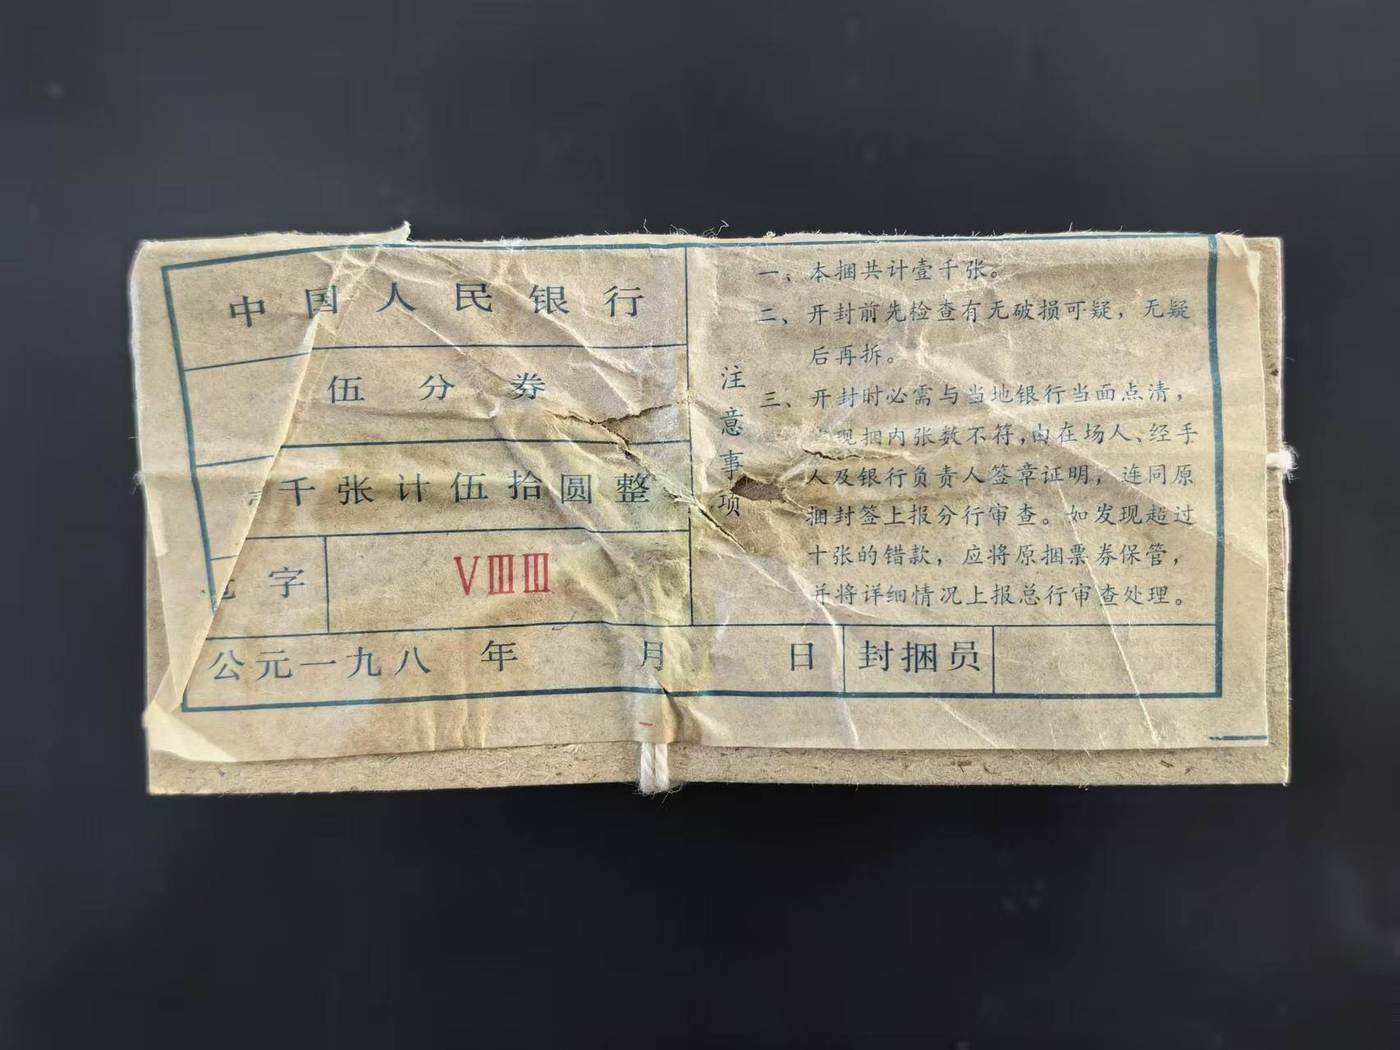 中国人民银行
伍分券
千张计伍拾圆整
字
VⅢⅢ
公元一九八 年 月 日
封捆员
注意事项
一、本捆共计壹千张。
二、开封前先检查有无破损可疑，无疑
后再拆。
三、开封时必需与当地银行当面点清，
现捆内张数不符，由在场人、经手
人及银行负责人签章证明，连同原
捆封签上报分行审查。如发现超过
十张的错款，应将原捆票券保管，
并将详细情况上报总行审查处理。